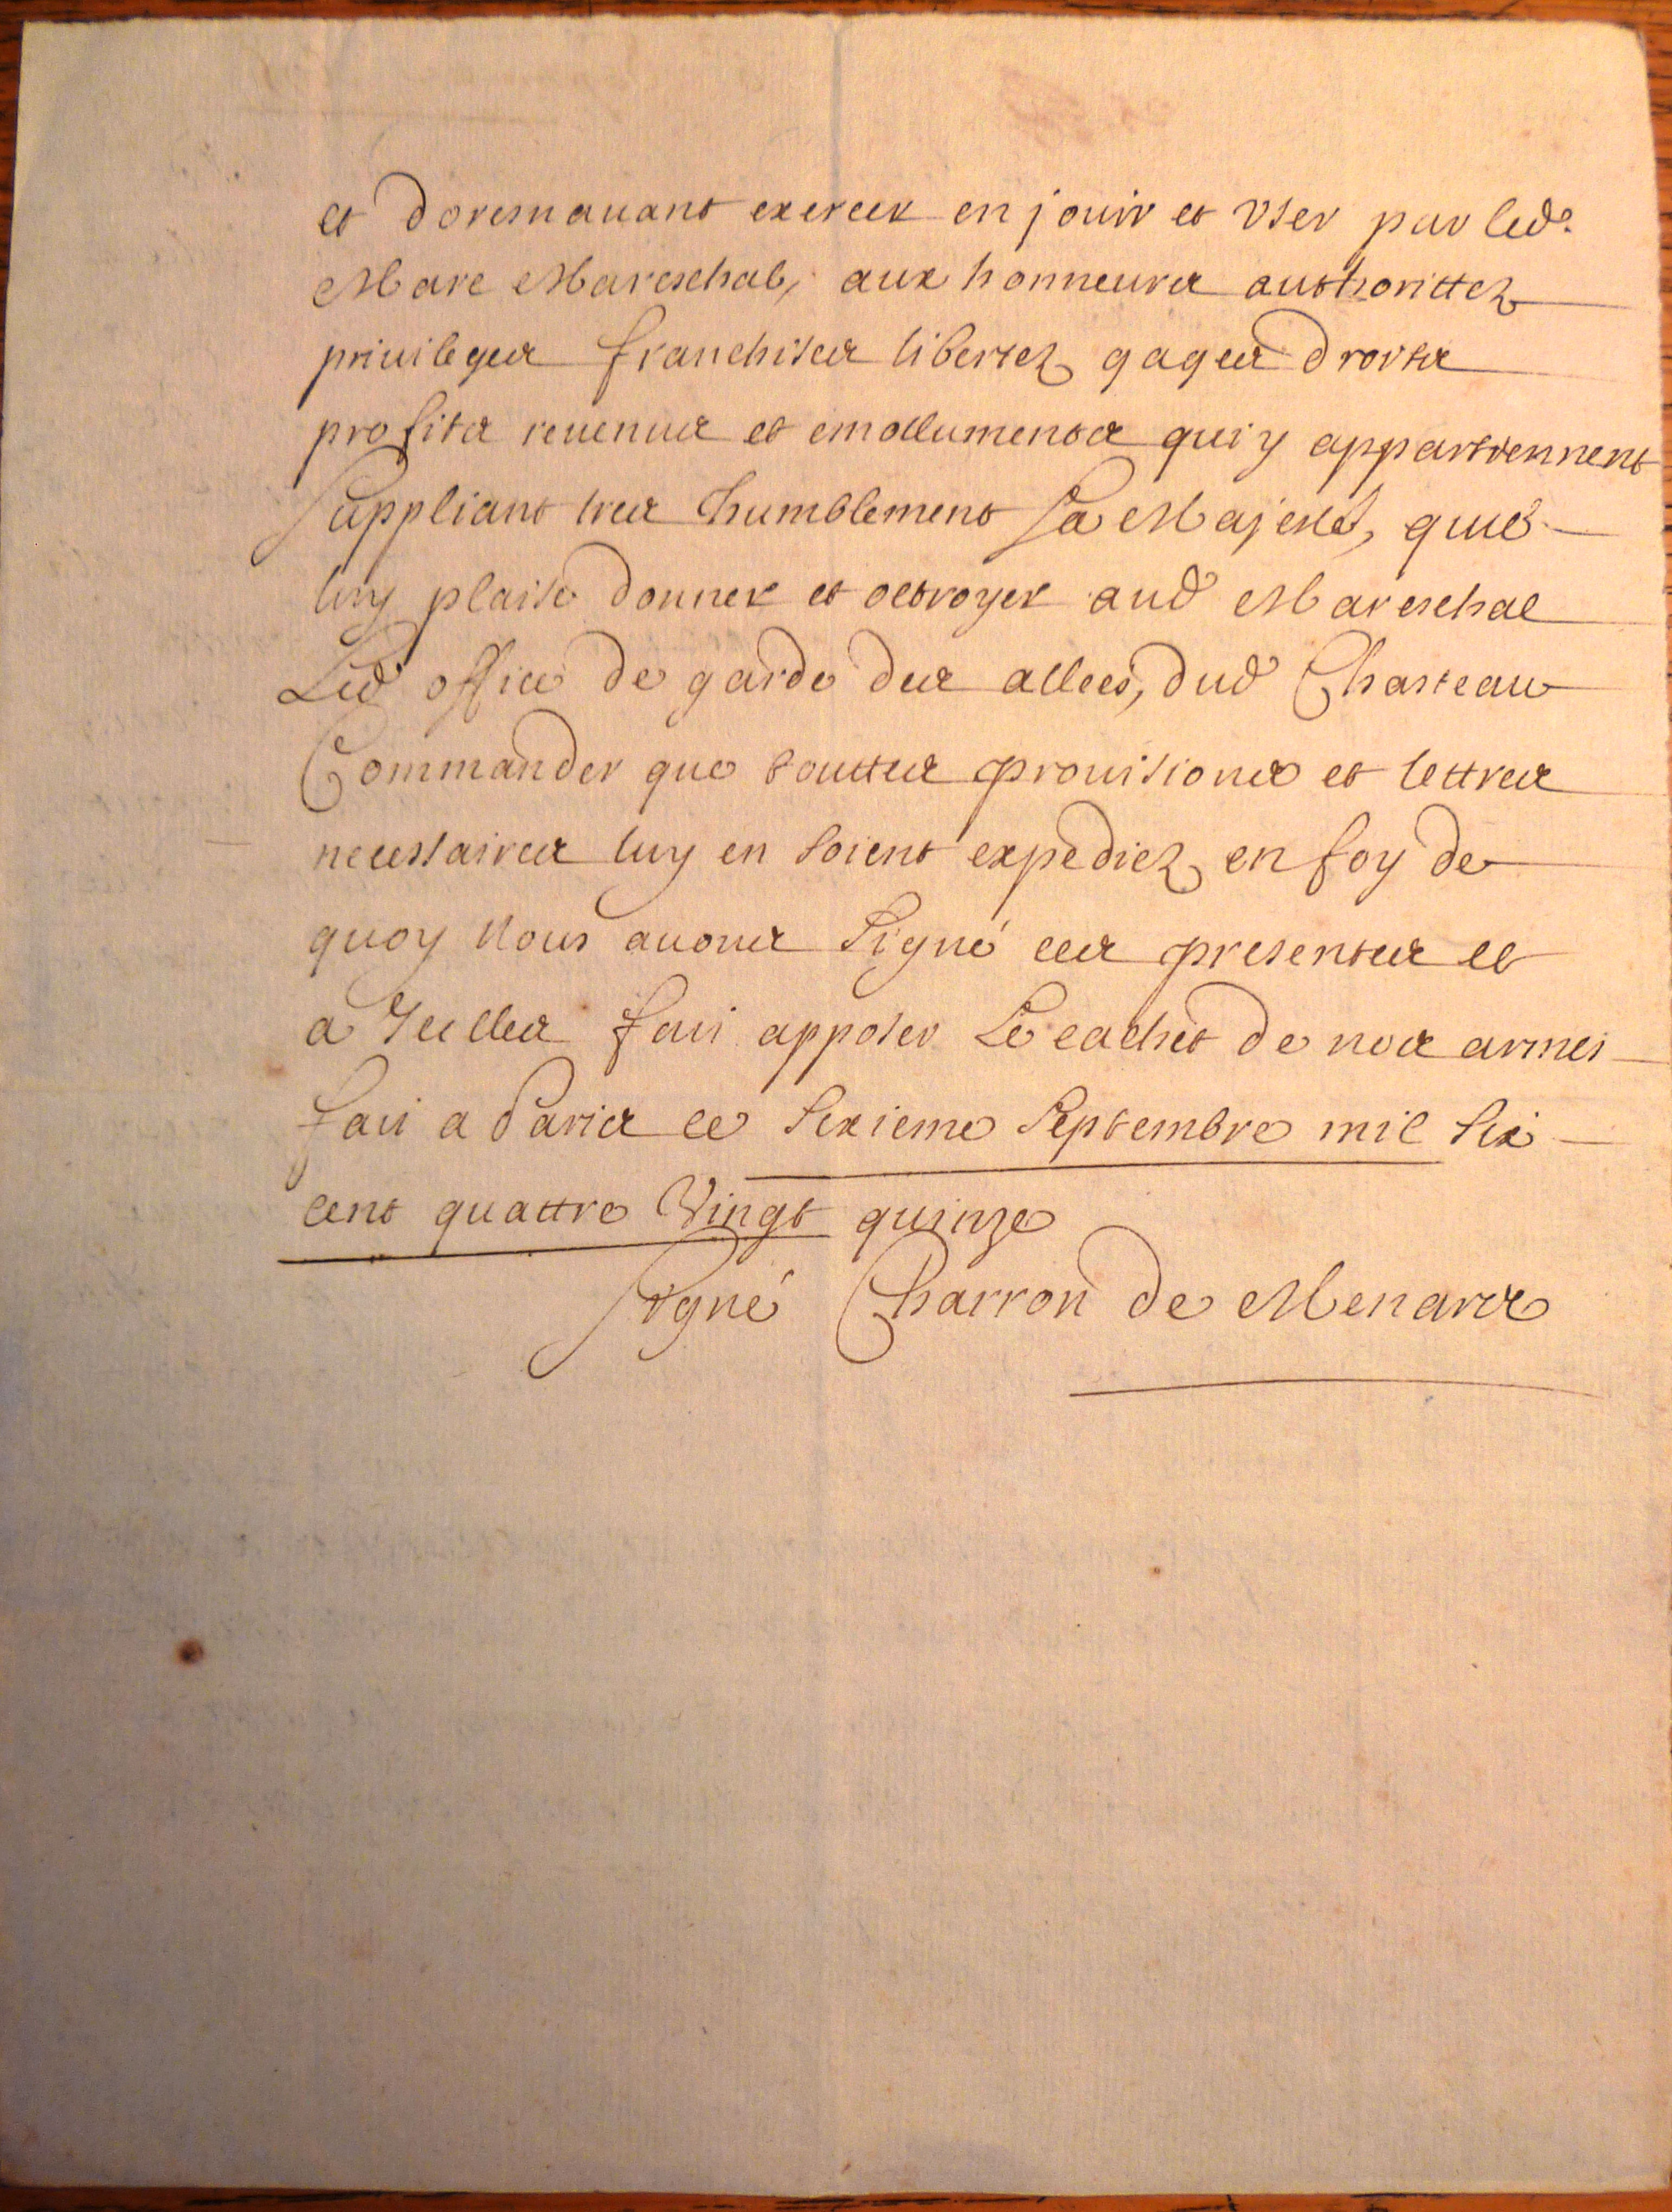 et doresnauant exercer en jouir et vser par led.
Marc Mareschal, aux honneurs authorittez
priuileges franchises libertez gages droits
profits reuenus et emollumentes qui y appartiennent
Suppliant tres humblement Sa Majesté, quil
luy plaise donner et octroyer aud Mareschal
Led office de garde des allees, dud Chasteau
Commander que touttes prouisions et lettres
necessaires luy en soient expediez en foy de
quoy Nous auons Signé ces presentes et
a Icelles fait apposer Le cachet de nos armes
fait a Paris ce sixieme Septembre mil six
cent quattre Vingt quinze
Signé Charron de Menars